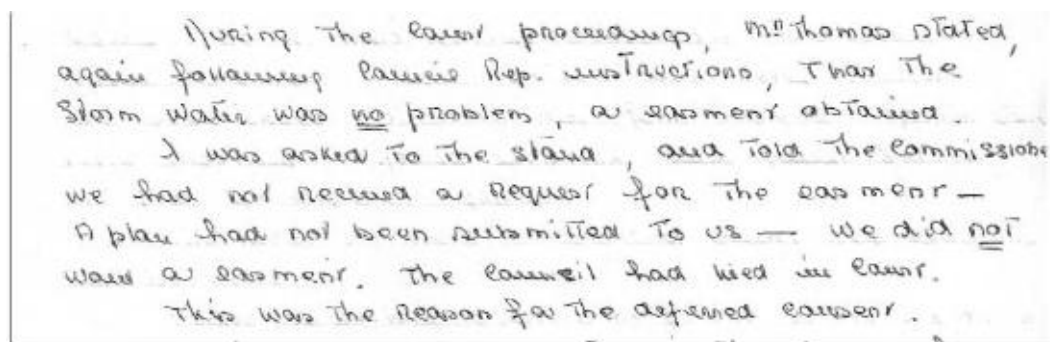 During the Court proceedings, Mr Thomas stated,
again following Council Rep. instructions, That The
Storm Water was no problem, a easment obtained.
I was asked To The stand, and Told The Commissione
we had not Received a Request for The easment —
A plan had not been submitted To us — we did not
want a easment. The Council had lied in Court.
This was The Reason for The deferred consent.